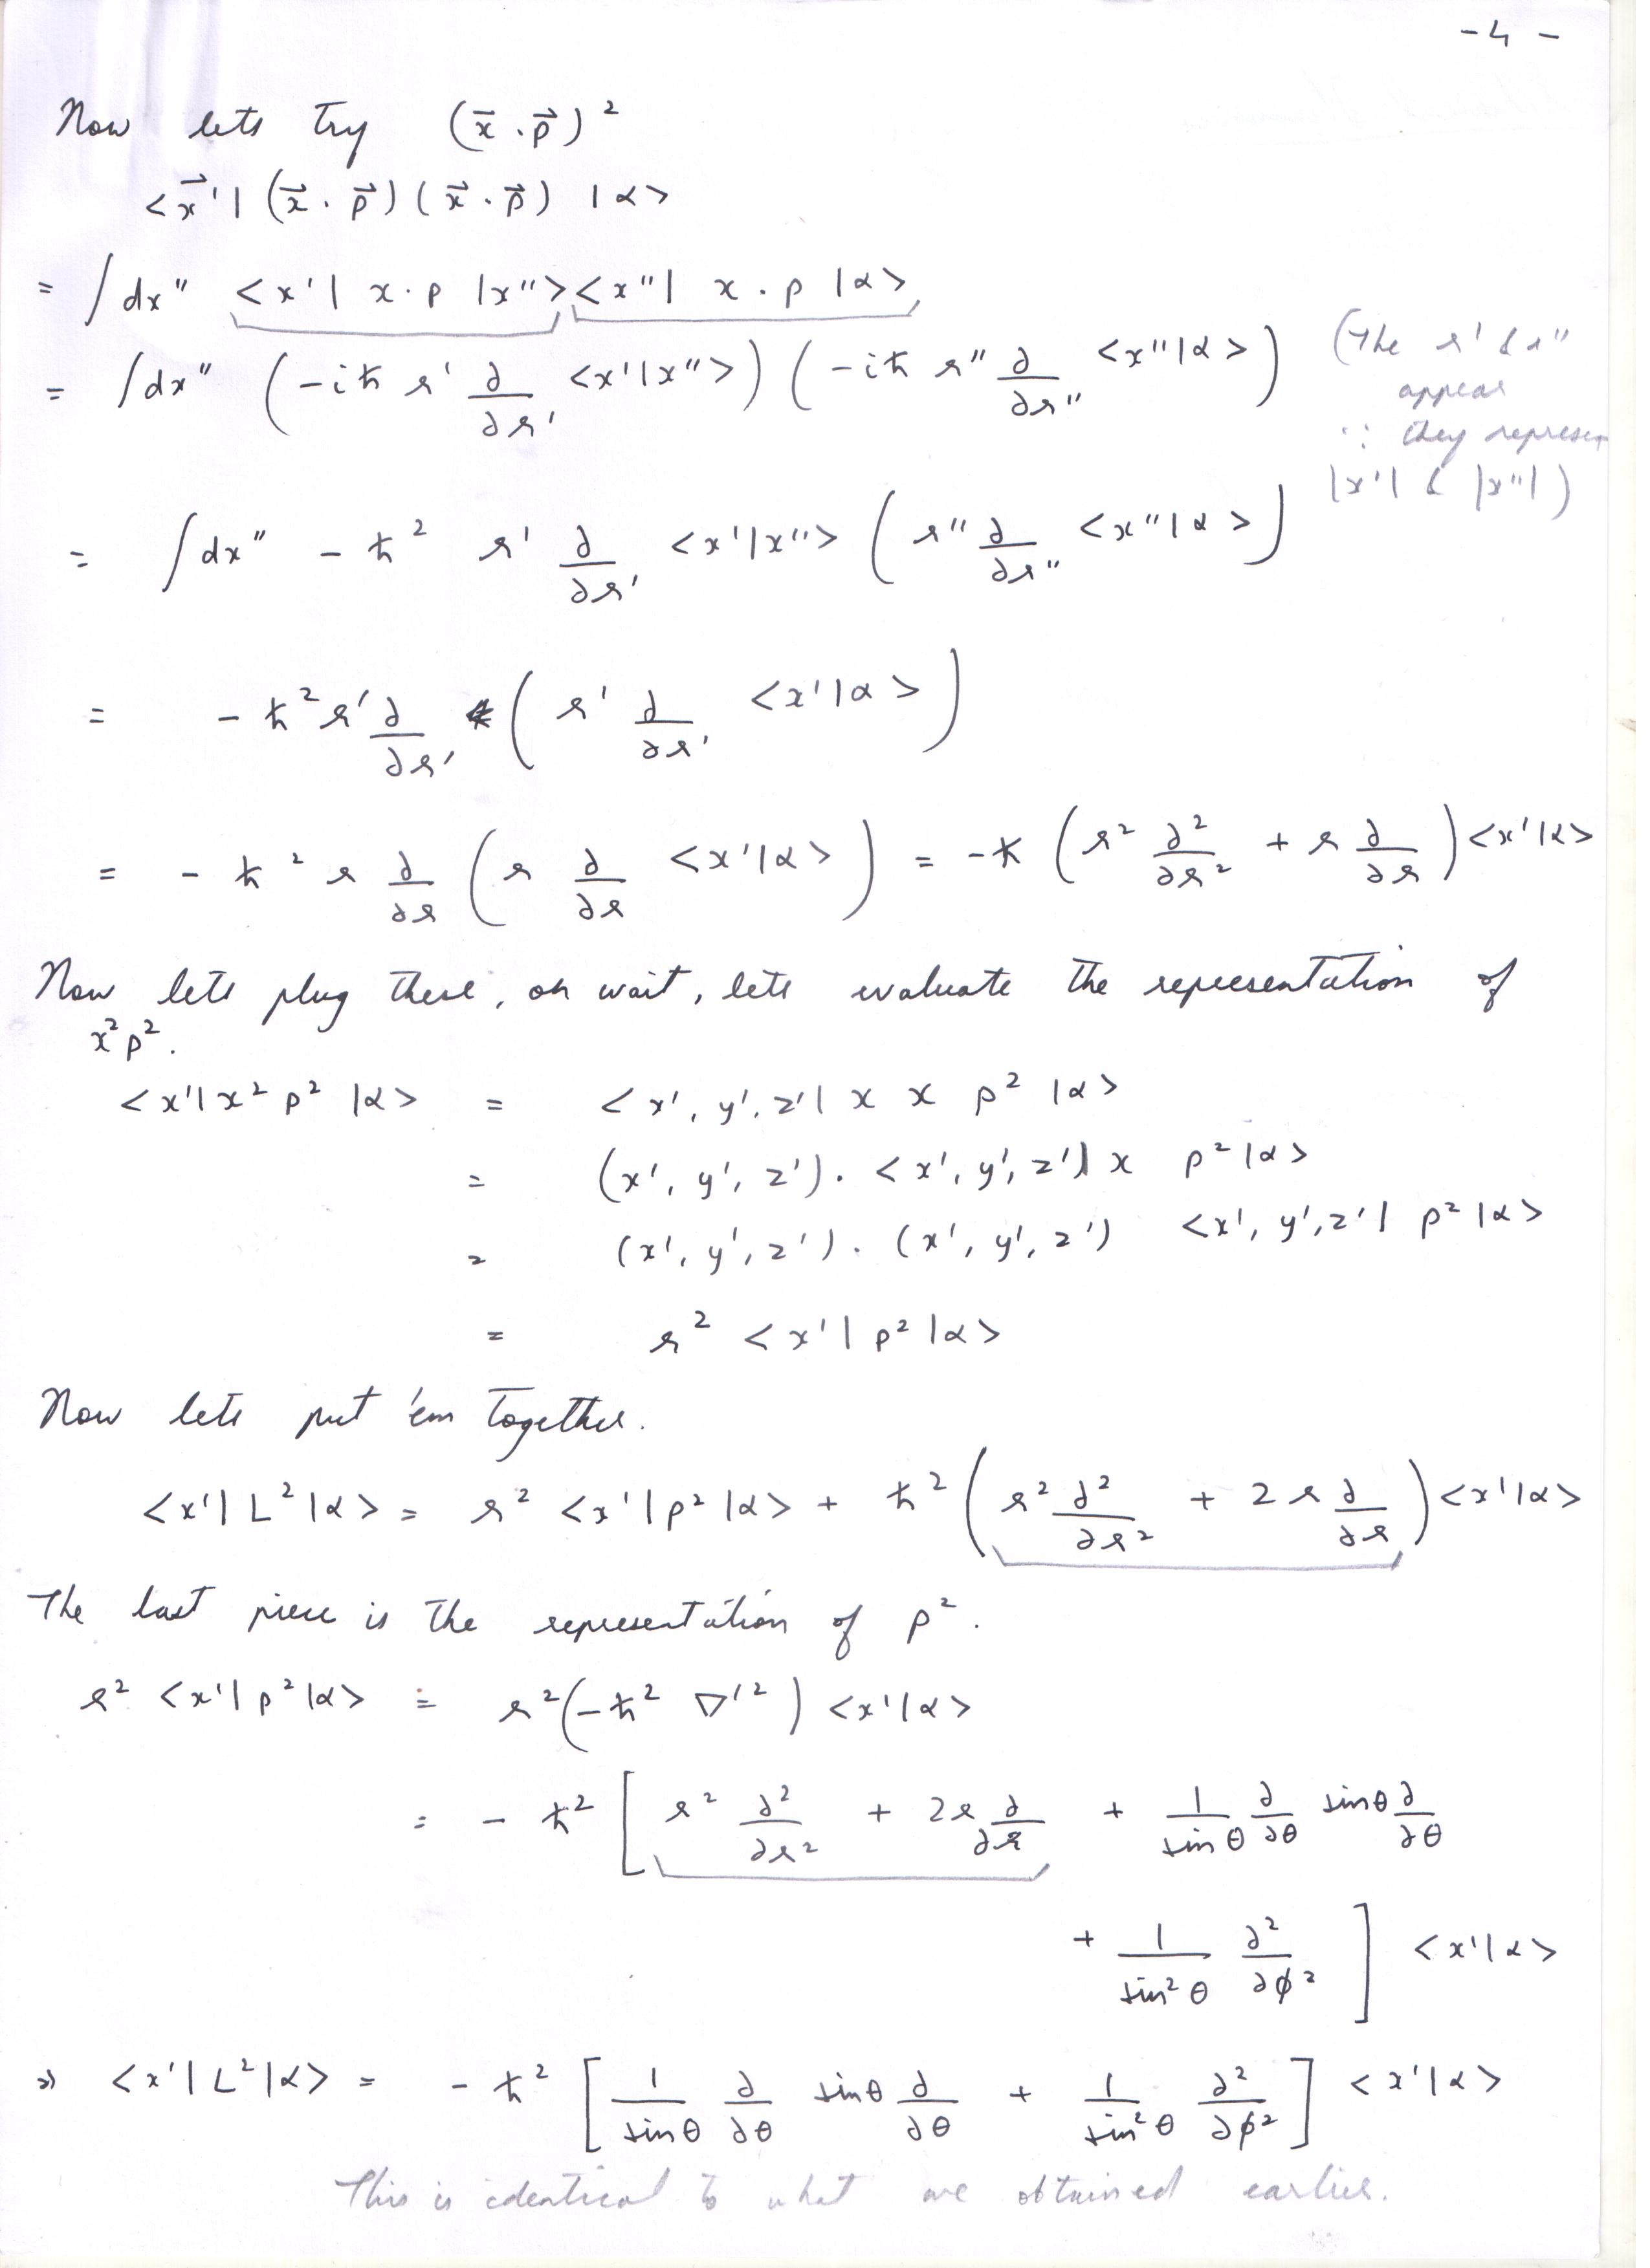 - 4 -
Now lets try (x⃗ . p⃗)²
<x⃗'| (x⃗ . p⃗) (x⃗ . p⃗) |α>
= ∫dx" <x'| x.p |x"><x"| x . p |α>
= ∫dx" (-iħ r' ∂/∂r' <x'|x">) (-iħ r" ∂/∂r" <x"|α>) (The r' & r"
appear
∵ they represen
|x'| & |x"|)
= ∫dx" - ħ² r' ∂/∂r' <x'|x"> (r" ∂/∂r" <x"|α>)
= - ħ² r' ∂/∂r' (r' ∂/∂r' <x'|α>)
= - ħ² r ∂/∂r (r ∂/∂r <x'|α>) = -ħ (r² ∂²/∂r² + r ∂/∂r) <x'|α>
Now lets plug these, oh wait, lets evaluate the representation of
x²p².
<x'|x² p² |α> = <x', y', z'| x x p² |α>
= (x', y', z') . <x', y', z'| x p² |α>
= (x', y', z') . (x', y', z') <x', y', z'| p² |α>
= r² <x'| p² |α>
Now lets put 'em together.
<x'| L² |α> = r² <x'| p² |α> + ħ² (r² ∂²/∂r² + 2 r ∂/∂r) <x'|α>
The last piece is the representation of p².
r² <x'| p² |α> = r² (-ħ² ∇'²) <x'|α>
= - ħ² [r² ∂²/∂r² + 2r ∂/∂r + 1/sinθ ∂/∂θ sinθ ∂/∂θ
+ 1/sin²θ ∂²/∂φ²] <x'|α>
⇒ <x'| L² |α> = - ħ² [1/sinθ ∂/∂θ sinθ ∂/∂θ + 1/sin²θ ∂²/∂φ²] <x'|α>
This is identical to what we obtained earlier.